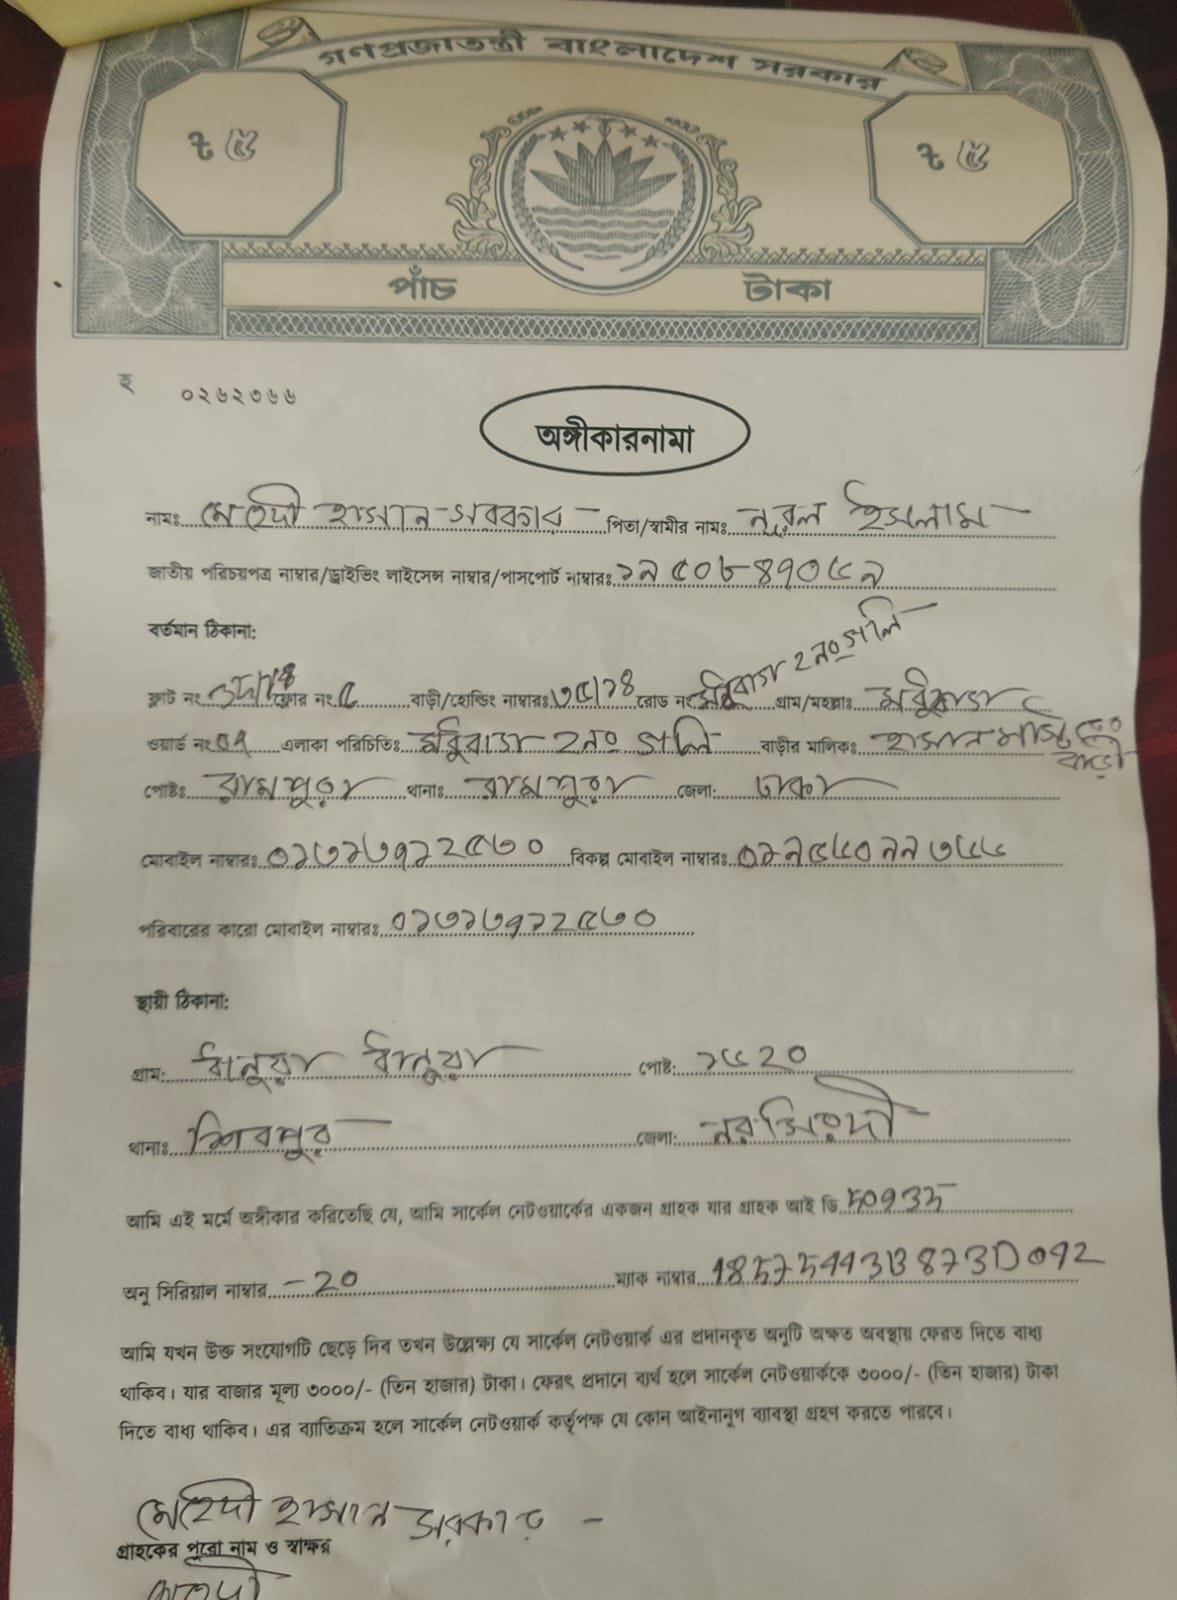 গণপ্রজাতন্ত্রী বাংলাদেশ সরকার
৳ ৫ ৳ ৫
পাঁচ টাকা
হ ০২৬২৩৬৬
অঙ্গীকারনামা
নামঃ মেহেদী হাসান সরকার পিতা/স্বামীর নামঃ নূরুল ইসলাম
জাতীয় পরিচয়পত্র নাম্বার/ড্রাইভিং লাইসেন্স নাম্বার/পাসপোর্ট নাম্বারঃ ১৯৫০৮৪৭০৫৯
বর্তমান ঠিকানা:
ফ্লাট নং ফ্লোর নং ৫ বাড়ী/হোল্ডিং নাম্বারঃ রোড নং ২নং গলি গ্রাম/মহল্লাঃ
ওয়ার্ড নং এলাকা পরিচিতিঃ ২নং গলি বাড়ীর মালিকঃ হাসান বাড়ী
পোষ্টঃ রামপুরা থানাঃ রামপুরা জেলা: ঢাকা
মোবাইল নাম্বারঃ ০১৩১৬৭১২৫৩০ বিকল্প মোবাইল নাম্বারঃ
পরিবারের কারো মোবাইল নাম্বারঃ ০১৩১৬৭১২৫৩০
স্থায়ী ঠিকানা:
গ্রাম: ধানুয়া ধানুয়া পোষ্ট: ১৬২০
থানাঃ শিবপুর জেলা: নরসিংদী
আমি এই মর্মে অঙ্গীকার করিতেছি যে, আমি সার্কেল নেটওয়ার্কের একজন গ্রাহক যার গ্রাহক আই ডি
অনু সিরিয়াল নাম্বার -20 ম্যাক নাম্বার
আমি যখন উক্ত সংযোগটি ছেড়ে দিব তখন উল্লেক্ষ্য যে সার্কেল নেটওয়ার্ক এর প্রদানকৃত অনুটি অক্ষত অবস্থায় ফেরত দিতে বাধ্য
থাকিব। যার বাজার মূল্য ৩০০০/- (তিন হাজার) টাকা। ফেরৎ প্রদানে ব্যর্থ হলে সার্কেল নেটওয়ার্ককে ৩০০০/- (তিন হাজার) টাকা
দিতে বাধ্য থাকিব। এর ব্যাতিক্রম হলে সার্কেল নেটওয়ার্ক কর্তৃপক্ষ যে কোন আইনানুগ ব্যাবস্থা গ্রহণ করতে পারবে।
মেহেদী হাসান সরকার
গ্রাহকের পুরো নাম ও স্বাক্ষর